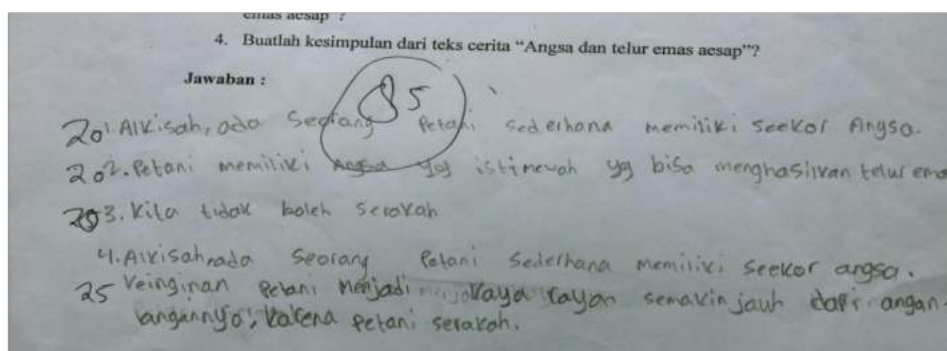 emas aesap ?
4. Buatlah kesimpulan dari teks cerita “Angsa dan telur emas aesap”?
Jawaban :
85
20 1. Alkisah, ada Seorang Petani sederhana memiliki seekor Angsa.
20 2. Petani memiliki Angsa yg istimewah yg bisa menghasilkan telur ema
3. Kita tidak boleh serakah
4. Alkisah, ada seorang Petani Sederhana memiliki seekor angsa.
25 Keinginan petani menjadi kaya rayan semakin jauh dari angan
angannya, karena petani serakah.